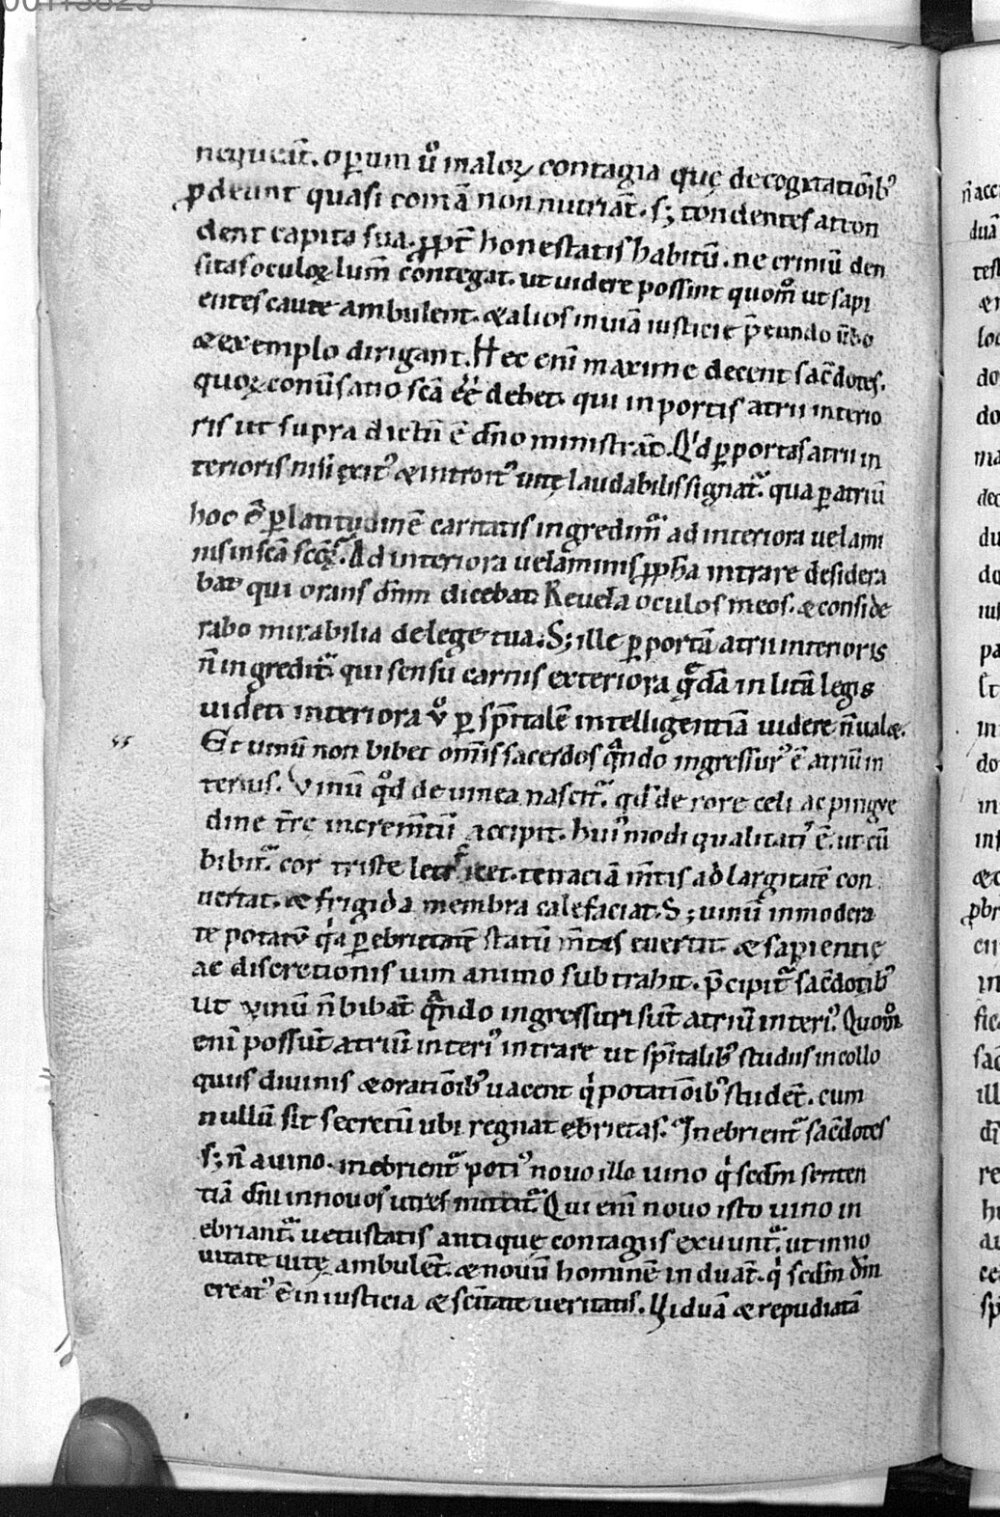 nequeāt. oꝑum ū̊ maloꝝ contagia quę de cogitatiōibꝰ
ꝓdeunt quasi comā non nutriāt. sꝫ tondentes atton
dent capita sua. ꝓpt̄ honestatis habitū. ne criniū den
sitas oculoꝝ lum̄ contegat. ut uidere possint quom̊ ut sapi
entes caute ambulent. & alios in uiā iusticie p̄eundo ūbo
& exemplo dirigant. Hec enī maxime decent sac̄dotes.
quoꝝ conūsatio scā eē debet. qui in portis atrii interio
ris ut supra dictū ē dn̄o ministrāt. Qd̕ ꝑ portas atrii in
terioris nisi exitꝰ & introitꝰ uitę laudabilis signat̄. qua ꝑ atriū
hoc ē ꝑ latitudinē caritatis ingredimꝰ ad interiora uelami
nis in scā scōꝝ. Ad interiora uelaminis ꝓph̄a intrare desidera
bat qui orans dn̄m dicebat. Reuela oculos meos. & conside
rabo mirabilia de lege tua. Sꝫ ille ꝑ portā atrii interioris
n̄ ingredit̄ qui sensu carnis exteriora q̄dā in litā legis
uidet. interiora ū̊ ꝑ spīitalē intelligentiā uidere n̄ ualet.
Et uinū non bibet omīs sacerdos q̄ndo ingressurꝰ ē atriū in
terius. Vinū q̊d de uinea nascit̄. qd̕ de rore celi ac pingue
dine t̄rę increm̄tū accipit. huiꝰmodi qualitatis ē. ut cū
bibit̄ cor triste letificet. tenaciā m̄tis ad largitatē con
uertat. & frigida membra calefaciat. Sꝫ uinū inmodera
te potatū qͥa ꝑ ebrietatē statū m̄tis euertit. & sapientię
ac discretionis uim animo subtrahit. p̄cipit̄ sac̄dotibꝰ
ut uinū n̄ bibāt q̄ndo ingressuri sūt atriū interiꝰ. Quom̊
enī possūt atriū interiꝰ intrare ut spīitalibꝰ studiis in collo
quiis diuinis & oratiōibꝰ uacent qͥ potatiōibꝰ studēt. cum
nullū sit secretū ubi regnat ebrietas. Inebrient̄ sac̄dotes
sꝫ n̄ a uino. inebrient̄ potiꝰ nouo illo uino qͥ sedm̄ senten
tiā dn̄i in nouos utres mittit̄. Qui enī nouo isto uino in
ebriant̄. uetustatis antique contagiis exuunt̄. ut in no
uitate uitę ambulēt. & nouū hominē induāt. qͥ sedm̄ dm̄
creatꝰ ē in iusticia & scītate ueritatis. Viduā & repudiatā